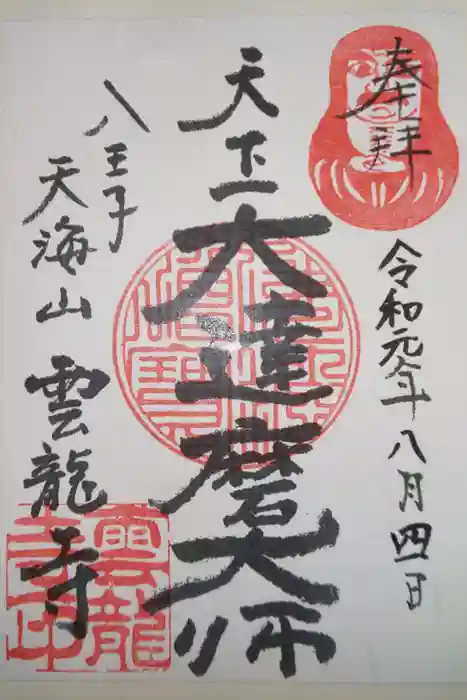 奉拝
令和元年八月四日
天下一
大達磨大師
八王子
天海山 雲龍寺
雲龍
寺印